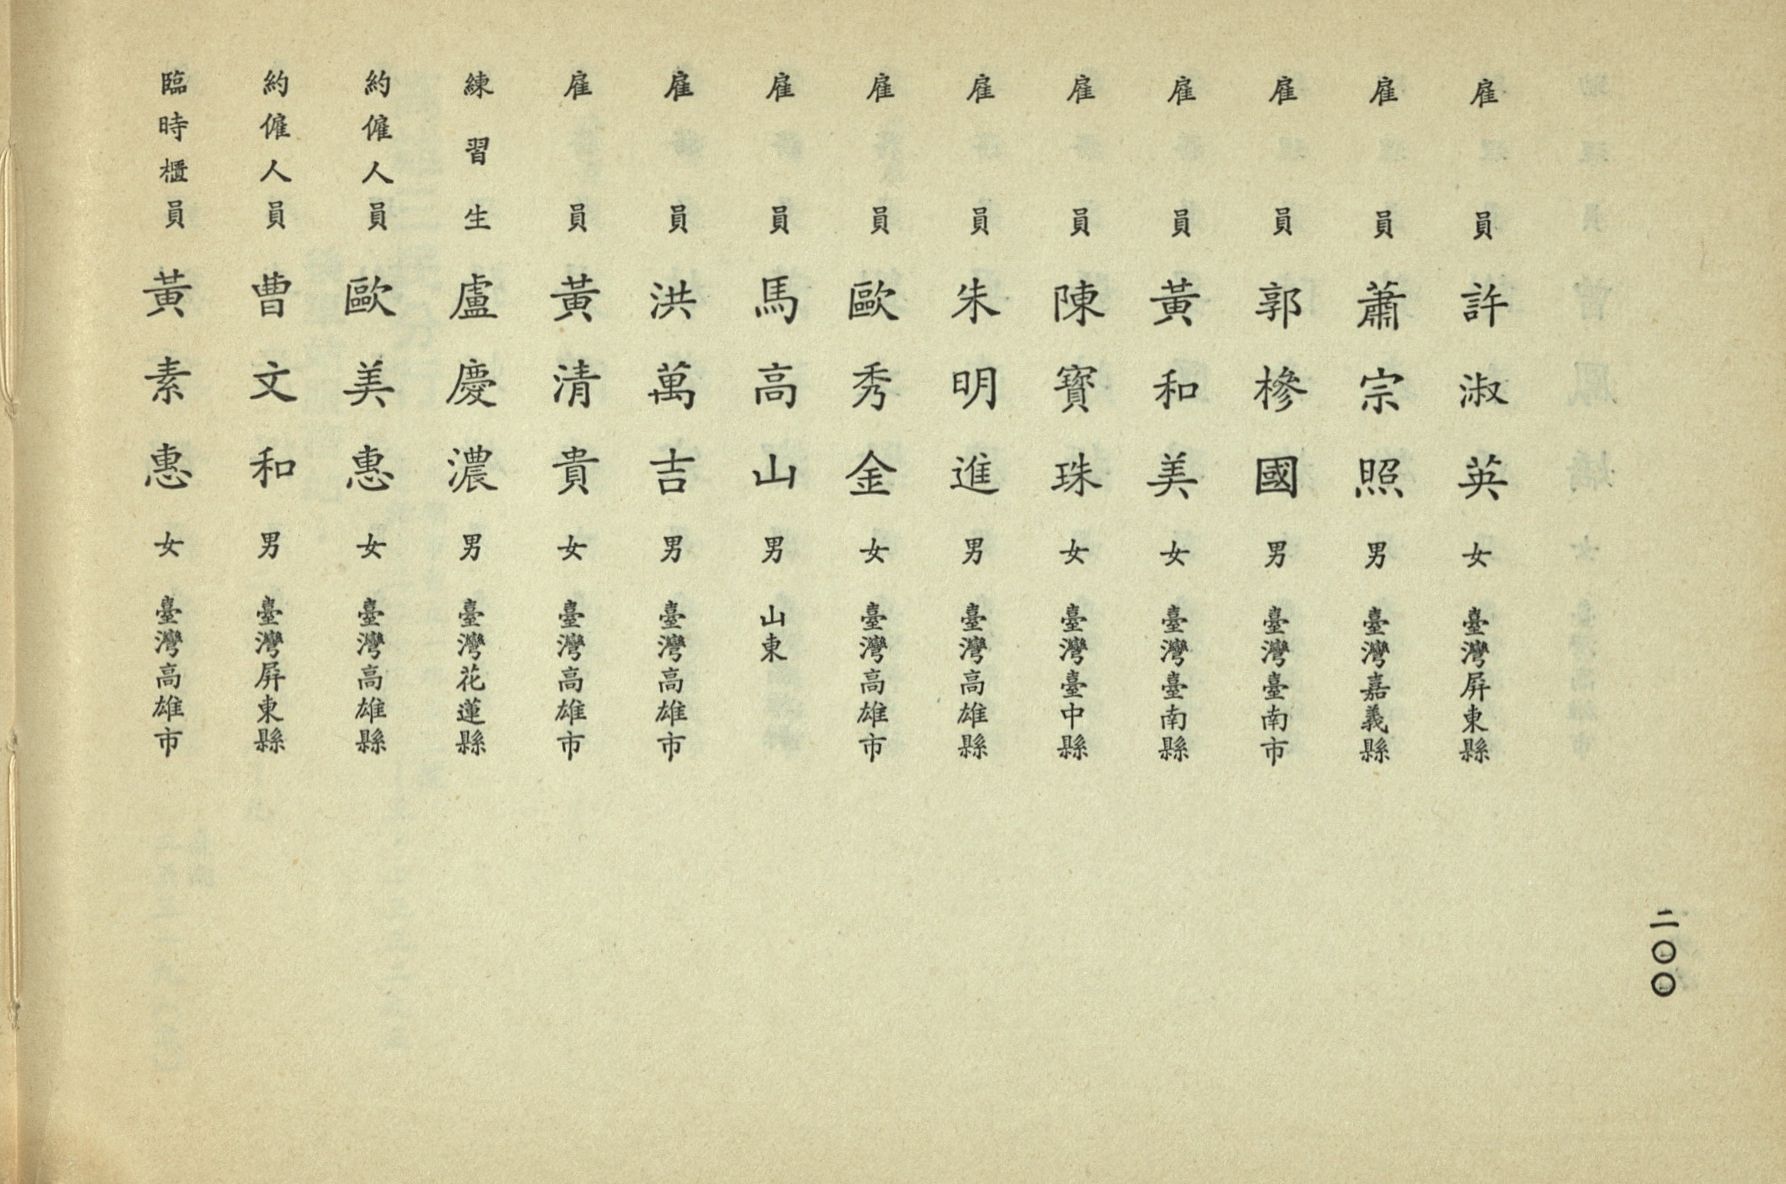 雇員 許淑英 女 臺灣屏東縣
雇員 蕭宗照 男 臺灣嘉義縣
雇員 郭槮國 男 臺灣臺南市
雇員 黃和美 女 臺灣臺南縣
雇員 陳寶珠 女 臺灣臺中縣
雇員 朱明進 男 臺灣高雄縣
雇員 歐秀金 女 臺灣高雄市
雇員 馬高山 男 山東
雇員 洪萬吉 男 臺灣高雄市
雇員 黃清貴 女 臺灣高雄市
練習生 盧慶濃 男 臺灣花蓮縣
約僱人員 歐美惠 女 臺灣高雄縣
約僱人員 曹文和 男 臺灣屏東縣
臨時櫃員 黃素惠 女 臺灣高雄市
二〇〇